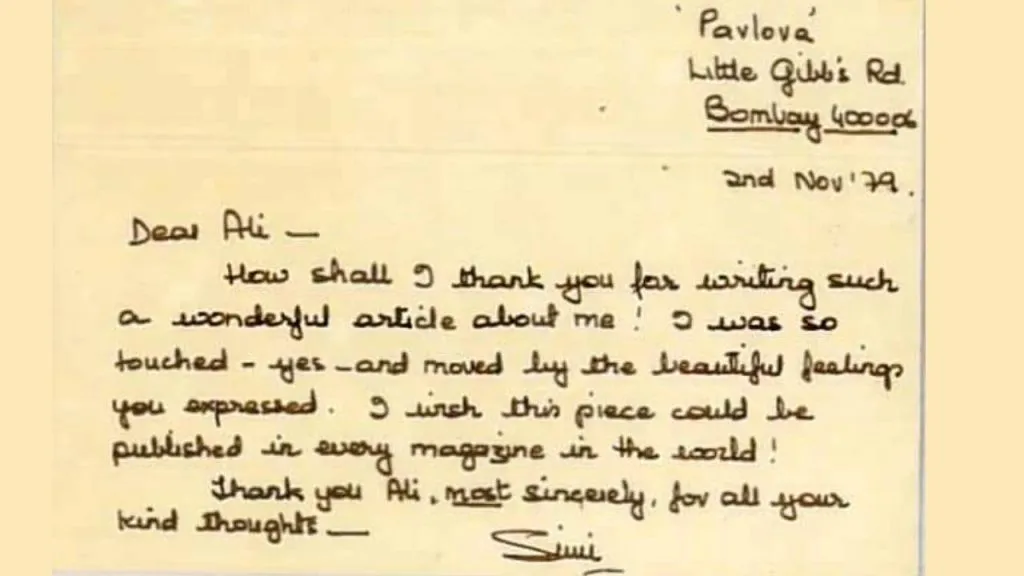 'Pavlova'
Little Gibb's Rd.
Bombay 400006
2nd Nov '79.
Dear Ali —
How shall I thank you for writing such
a wonderful article about me! I was so
touched - yes - and moved by the beautiful feelings
you expressed. I wish this piece could be
published in every magazine in the world!
Thank you Ali, most sincerely, for all your
kind thoughts —
Simi